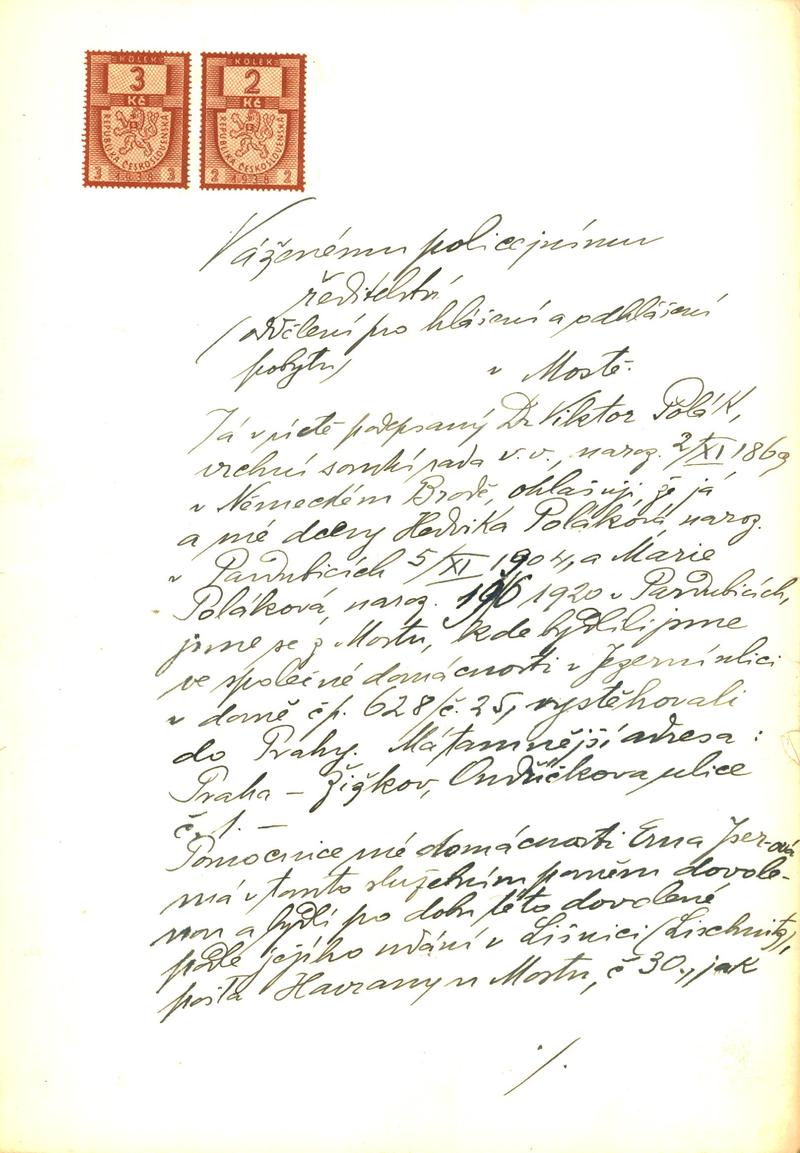 KOLEK KOLEK
3 2
Kč Kč
REPUBLIKA ČESKOSLOVENSKÁ REPUBLIKA ČESKOSLOVENSKÁ
3 1938 3 2 1938 2
Váženému policejnímu
ředitelství
(oddělení pro hlášení a odhlášení
pobytu)
v Mostě.
Já v úctě podepsaný Dr Viktor Polák,
vrchní soudní rada v. v., naroz. 2/XI 1869
v Německém Brodě, ohlašuji, že já
a mé dcery Hedvika Poláková, naroz.
v Pardubicích 5/XI 1904, a Marie
Poláková, naroz. 1920 v Pardubicích,
jsme se z Mostu, kde bydlili jsme
ve společné domácnosti v Jezerní ulici
v domě čp. 628/č. 25, vystěhovali
do Prahy. Má tamnější adresa:
Praha – Žižkov, Ondříčkova ulice
č. 1. –
Pomocnice mé domácnosti Erna
má v tomto služebním poměru dovole-
nou a bydlí po dobu této dovolené
podle jejího udání v Lišnici (Lischnitz),
pošta Havrany u Mostu, č 30., jak
./.